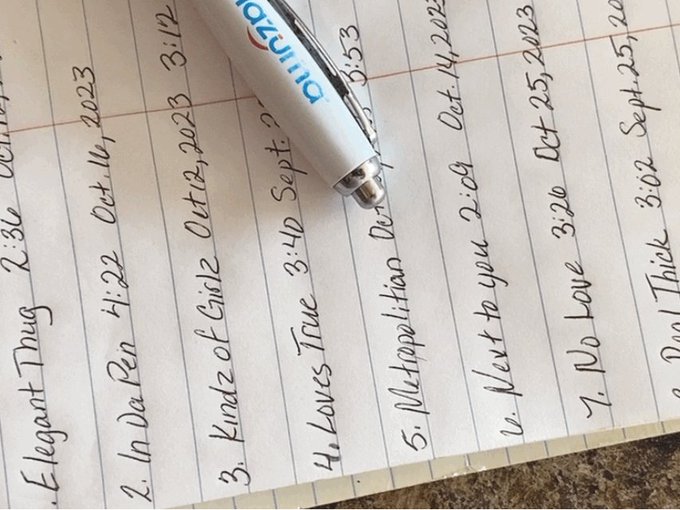 . Elegant Thug 2:36 Oct.
2. In Da Pen 4:22 Oct. 16, 2023
3. Kindz of Girlz Oct 12, 2023 3:12
4. Loves True 3:40 Sept.
5. Metropolitian Oct 3:53
6. Next to you 2:09 Oct. 14, 2023
7. No Love 3:26 Oct 25, 2023
Real Thick 3:02 Sept. 25, 20